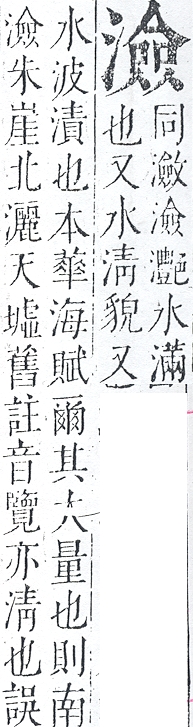 澰
同瀲澰灩水滿
也又水淸貌又
水波濆也本華海賦爾其大量也則南
澰朱崖北灑天墟舊註音覽亦淸也誤